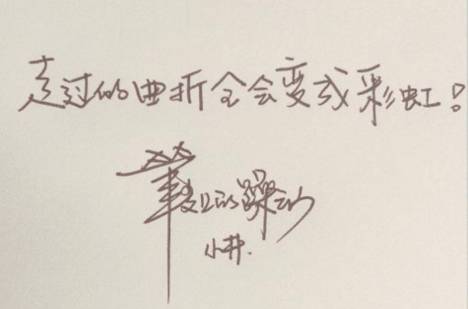 走过的曲折全会变成彩虹!
的躁动
小井.